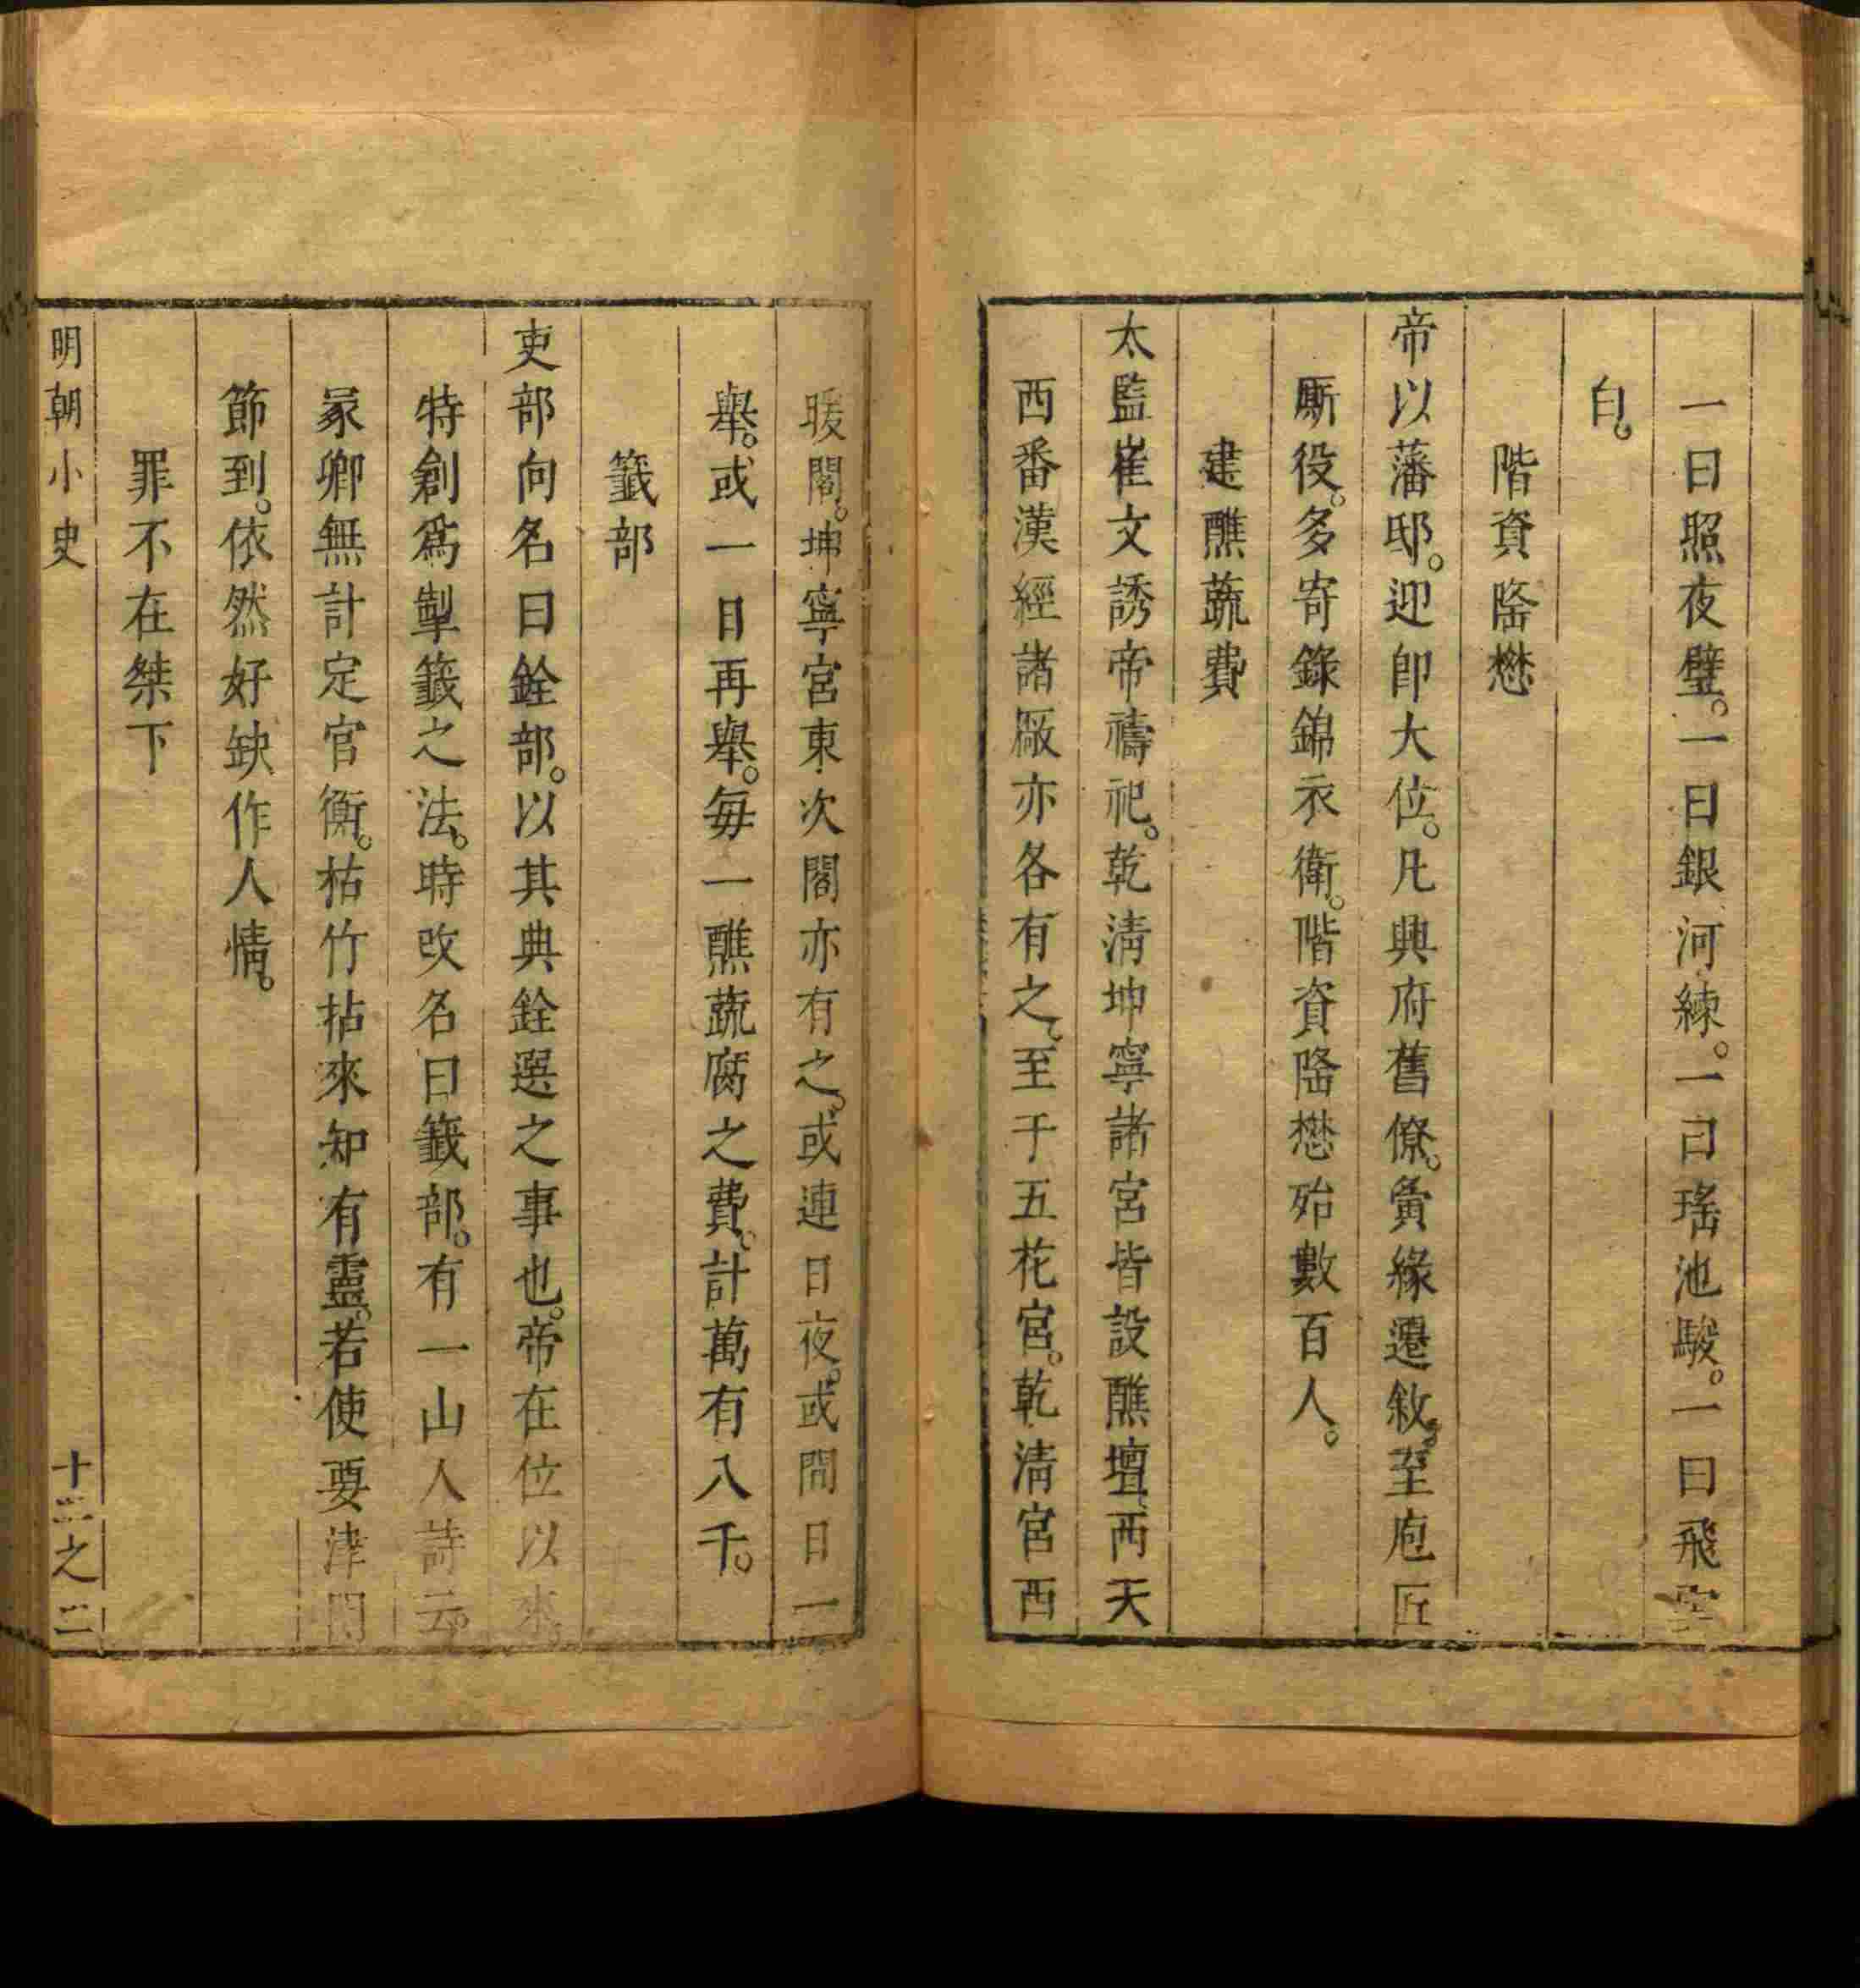 一曰照夜璧。一曰銀河練。一曰瑤池駿。一曰飛雲
白。
階資隆懋
帝以藩邸。迎卽大位。凡興府舊僚。夤緣遷敘。至庖匠
厮役。多寄錄錦衣衛。階資隆懋殆數百人。
建醮蔬費
太監崔文誘帝禱祀。乾淸坤寧諸宮皆設醮壇。西天
西番漢經諸厰亦各有之。至于五花宮。乾淸宮西
暖閣。坤寧宮東次閣亦有之。或連日夜。或間日一
舉。或一日再舉。每一醮蔬腐之費。計萬有八千。
籤部
吏部向名曰銓部。以其典銓選之事也。帝在位以來。
特創爲掣籤之法。時改名曰籤部。有一山人詩云。
冢卿無計定官衡。枯竹拈來知有靈。若使要津關
節到。依然好缺作人情。
罪不在桀下
明朝小史
十二之二